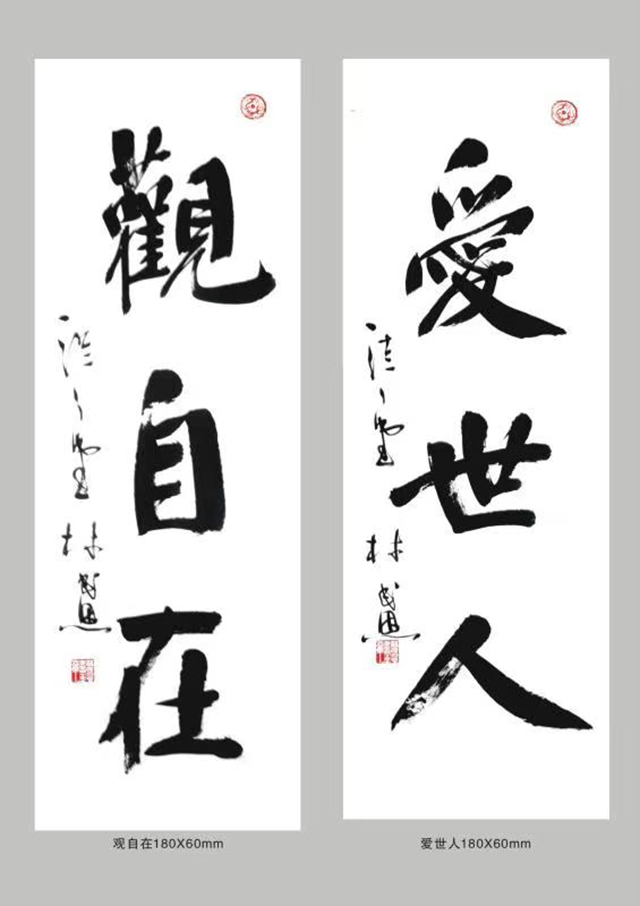 觀自在
林
观自在180X60mm
愛世人
林
爱世人180X60mm